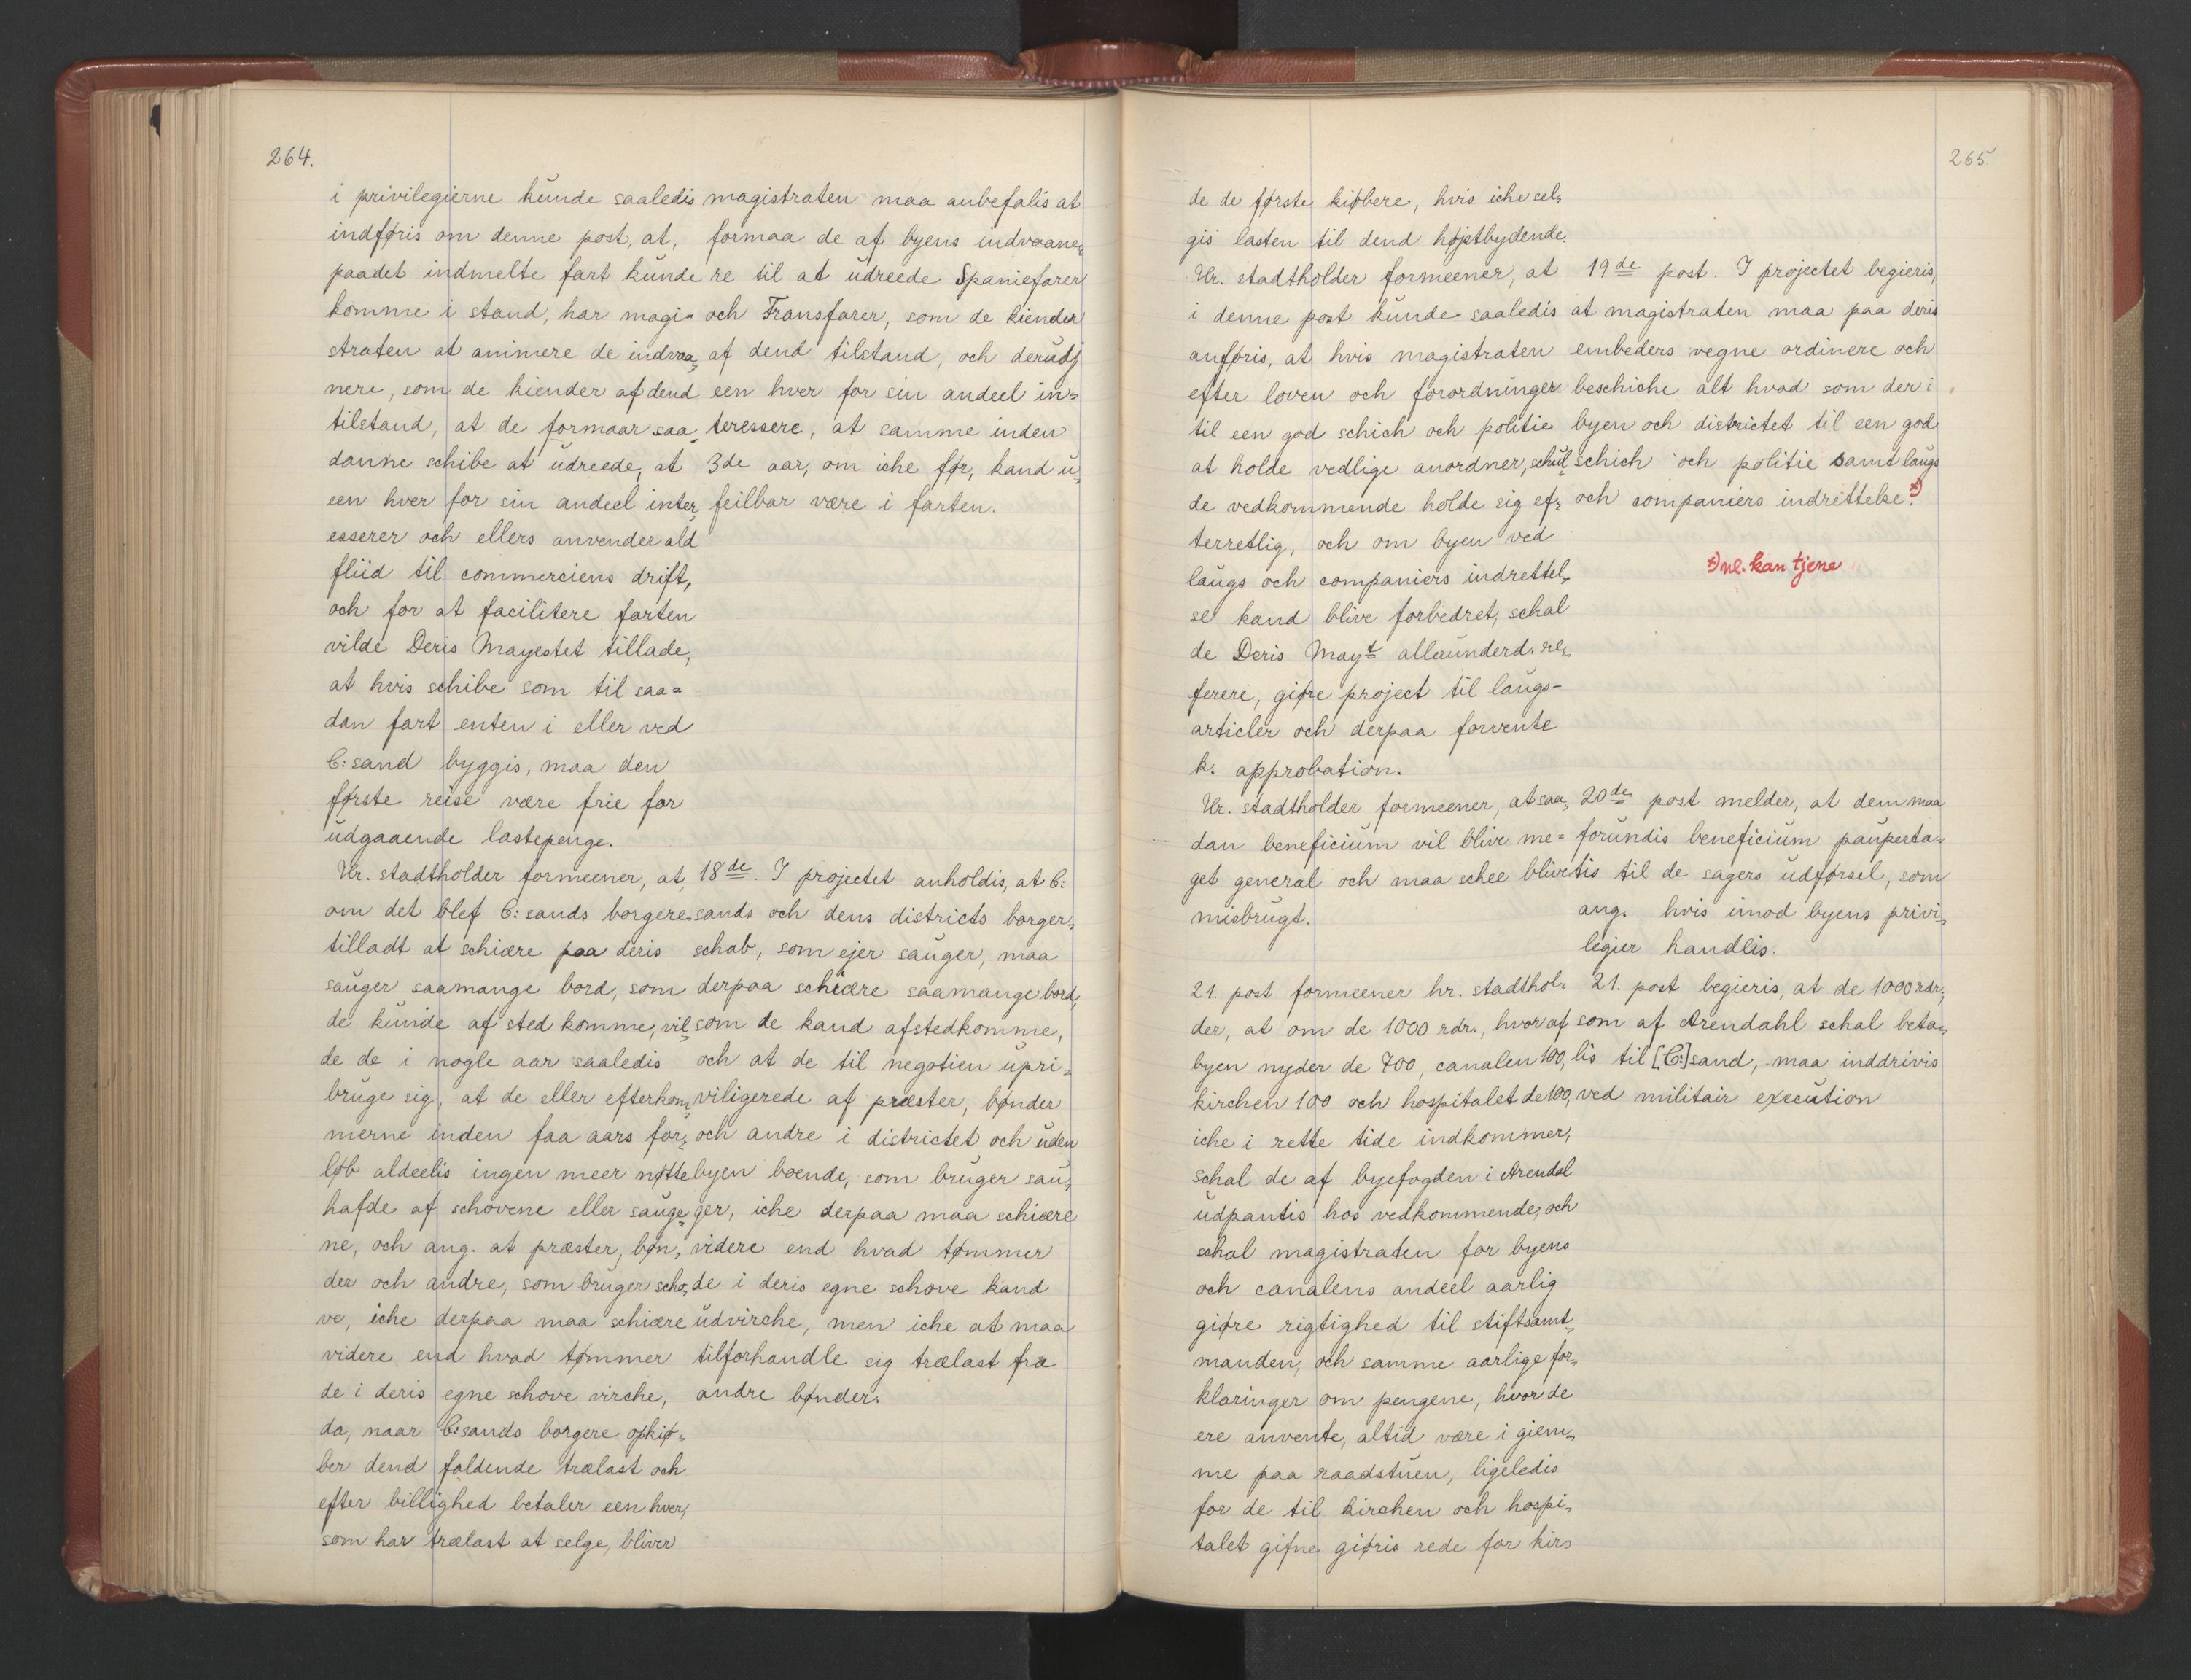 264.
i privilegierne kunde saaledis
indføris om denne post, at,
paadet indmelte fart kunde
komme i stand, har magi-
straten at animere de indvaa-
nere, som de kiender af dend
tilstand, at de formaar saa-
danne schibe at udreede, at
een hver for sin andeel inter-
esserer och ellers anvender ald
fliid til commerciens drift,
och for at facilitere farten
vilde Deris Mayestet tillade,
at hvis schibe som til saa-
dan fart enten i eller ved
C:sand byggis, maa den
første reise være frie for
udgaaende lastepenge.
Hr. stadtholder formeener, at,
om det blef C:sands borgere
tilladt at schiære paa deris
sauger saamange bord, som
de kunde af sted komme, vil-
de de i nogle aar saaledis
bruge sig, at de eller efterkom-
merne inden faa aars for-
løb aldeelis ingen meer nøtte
hafde af schovene eller sauge-
ne, och ang. at præster, bøn-
der och andre, som bruger scho-
ve, iche derpaa maa schiære
videre end hvad tømmer
de i deris egne schove virche,
da, naar C:sands borgere opkiø-
ber dend faldende trælast och
efter billighed betaler een hver,
som har trælast at selge, bliver
magistraten maa anbefalis at
formaa de af byens indvaane-
re til at udreede Spaniefarer
och Fransfarer, som de kiender
af dend tilstand, och derudj
een hver for sin andeel in-
teressere, at samme inden
3de aar, om iche før, kand u-
feilbar være i farten.
18de. I projectet anholdis, at C:
sands och dens districts borger-
schab, som ejer sauger, maa
derpaa schiære saamange bord,
som de kand afstedkomme,
och at de til negotien upri-
viligerede af præster, bønder
och andre i districtet och uden
byen boende, som bruger sau-
ger, iche derpaa maa schiære
videre end hvad tømmer
de i deris egne schove kand
udvirche, men iche at maa
tilforhandle sig trælast fra
andre bønder.
265
de de første kiøbere, hvis iche sel-
gis lasten til dend højstbydende.
Hr. stadtholder formeener, at
i denne post kunde saaledis
anføris, at hvis magistraten
efter loven och forordninger
til een god schich och politie
at holde vedlige anordner, schul-
de vedkommende holde sig ef-
terretlig, och om byen ved
laugs och companiers indrettel-
se kand blive forbedret, schal
de Deris Mayt allerunderd. re-
ferere, giøre project til laugs-
articler och derpaa forvente
k. approbation.
Hr. stadtholder formeener, at saa-
dan beneficium vil blive me-
get general och maa schee blive
misbrugt.
21. post formeener hr. stadthol-
der, at om de 1000 rdr., hvoraf
byen nyder de 700, canalen 100,
kirchen 100 och hospitalet de 100,
iche i rette tide indkommer,
schal de af byefogden i Arendal
udpantis hos vedkommende, och
schal magistraten for byens
och canalens andeel aarlig
giøre rigtighed til stiftsamt-
manden, och samme aarlige for-
klaringer om pengene, hvor de
ere anvente, altid være i giem-
me paa raadstuen, ligeledis
for de til kirchen och hospi-
talet gifne giøris rede for kir-
19de post. I projectet begieris,
at magistraten maa paa deris
embeders vegne ordinere och
beschiche alt hvad som der i
byen och districtet til een god
schich och politie samt laugs
och companiers indrettelse. *)
*) nl. kan tjene
20de post melder, at dem maa
forundis beneficium pauperta-
tis til de sagers udførsel, som
ang. hvis imod byens privi-
legier handlis.
21. post begieris, at de 1000 rdr.,
som af Arendahl schal beta-
lis til [C:]sand, maa inddrivis
ved militair execution